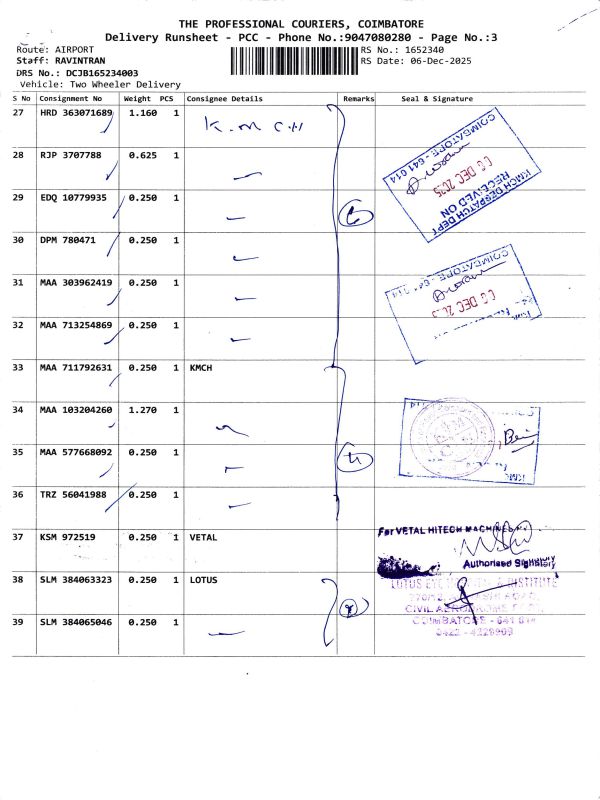 THE PROFESSIONAL COURIERS, COIMBATORE
Delivery Runsheet - PCC - Phone No.:9047080280 - Page No.:3
Route: AIRPORT RS No.: 1652340
Staff: RAVINTRAN RS Date: 06-Dec-2025
DRS No.: DCJB165234003
Vehicle: Two Wheeler Delivery
S No Consignment No Weight PCS Consignee Details Remarks Seal & Signature
27 HRD 363071689 1.160 1 K.M C H
28 RJP 3707788 0.625 1
29 EDQ 10779935 0.250 1
30 DPM 780471 0.250 1
31 MAA 303962419 0.250 1
32 MAA 713254869 0.250 1
33 MAA 711792631 0.250 1 KMCH
34 MAA 103204260 1.270 1
35 MAA 577668092 0.250 1
36 TRZ 56041988 0.250 1
37 KSM 972519 0.250 1 VETAL
38 SLM 384063323 0.250 1 LOTUS
39 SLM 384065046 0.250 1
KMCH DESPATCH DEPT
RECEIVED ON
06 DEC 2025
COIMBATORE - 641 014
06 DEC
COIMBATORE
For VETAL HITECH MACHINES
Authorised Signatory
LOTUS EYE & INSTITUTE
CIVIL AERODROME
COIMBATORE - 641 014
0422 - 4229909